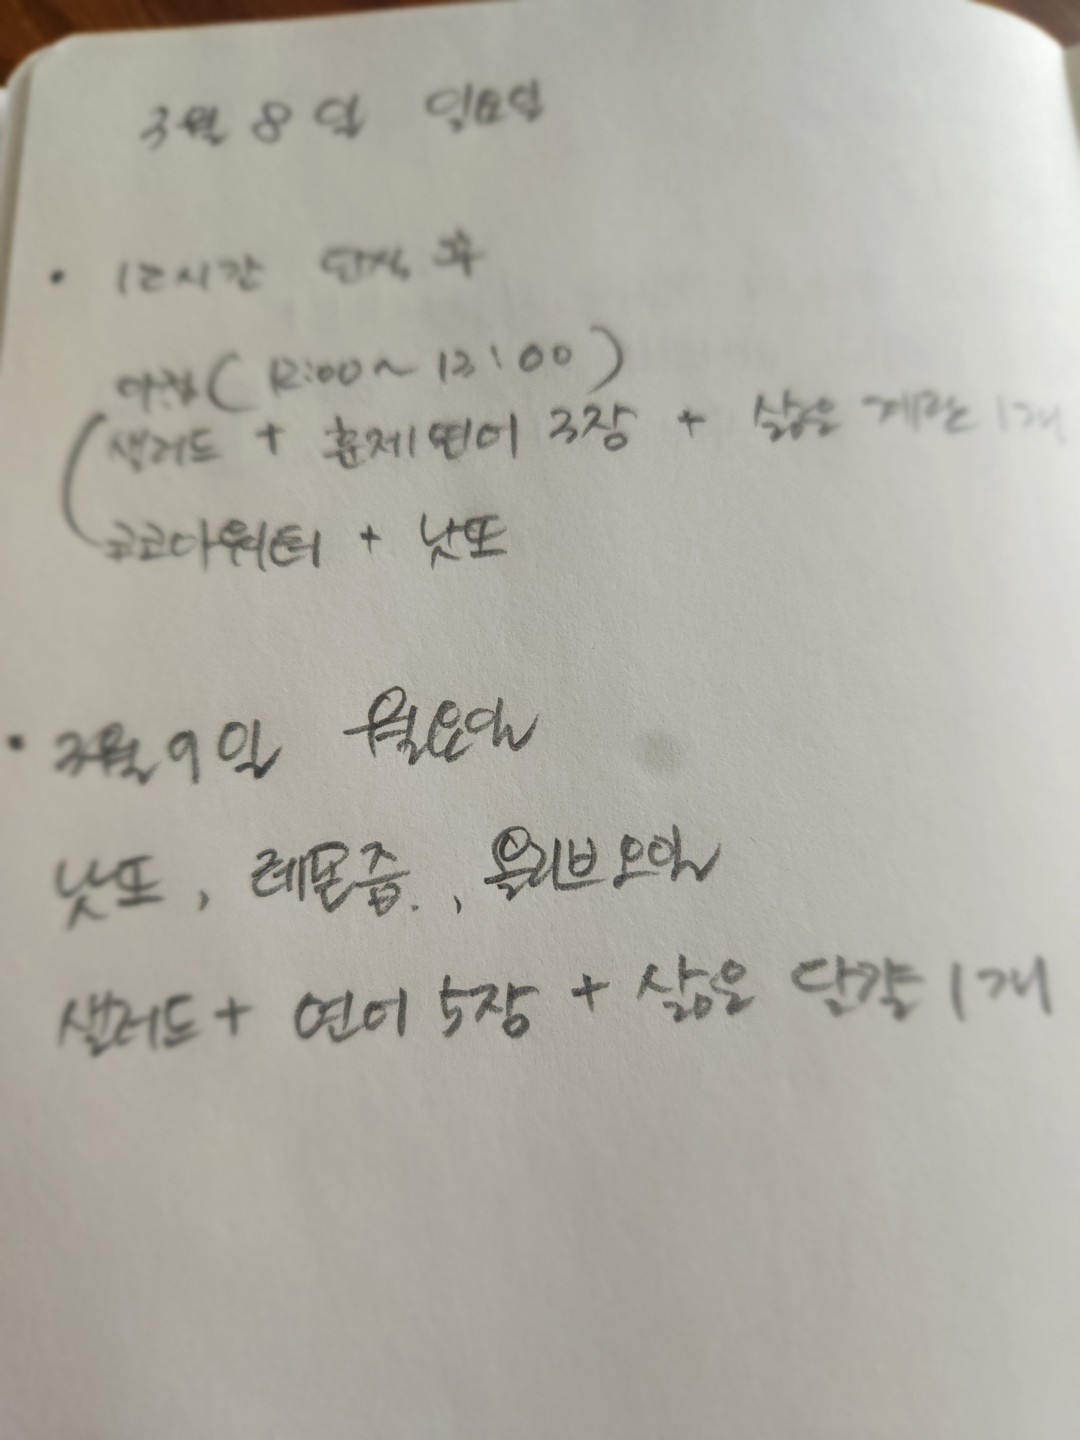 3월 8일 일요일
• 12시간 단식 후
아침 ( 12:00 ~ 13:00 )
샐러드 + 훈제연어 3장 + 삶은 계란 1개
코코아워터 + 낫또
• 3월 9일 월요일
낫또, 레몬즙., 올리브오일
샐러드 + 연어 5장 + 삶은 달걀 1개